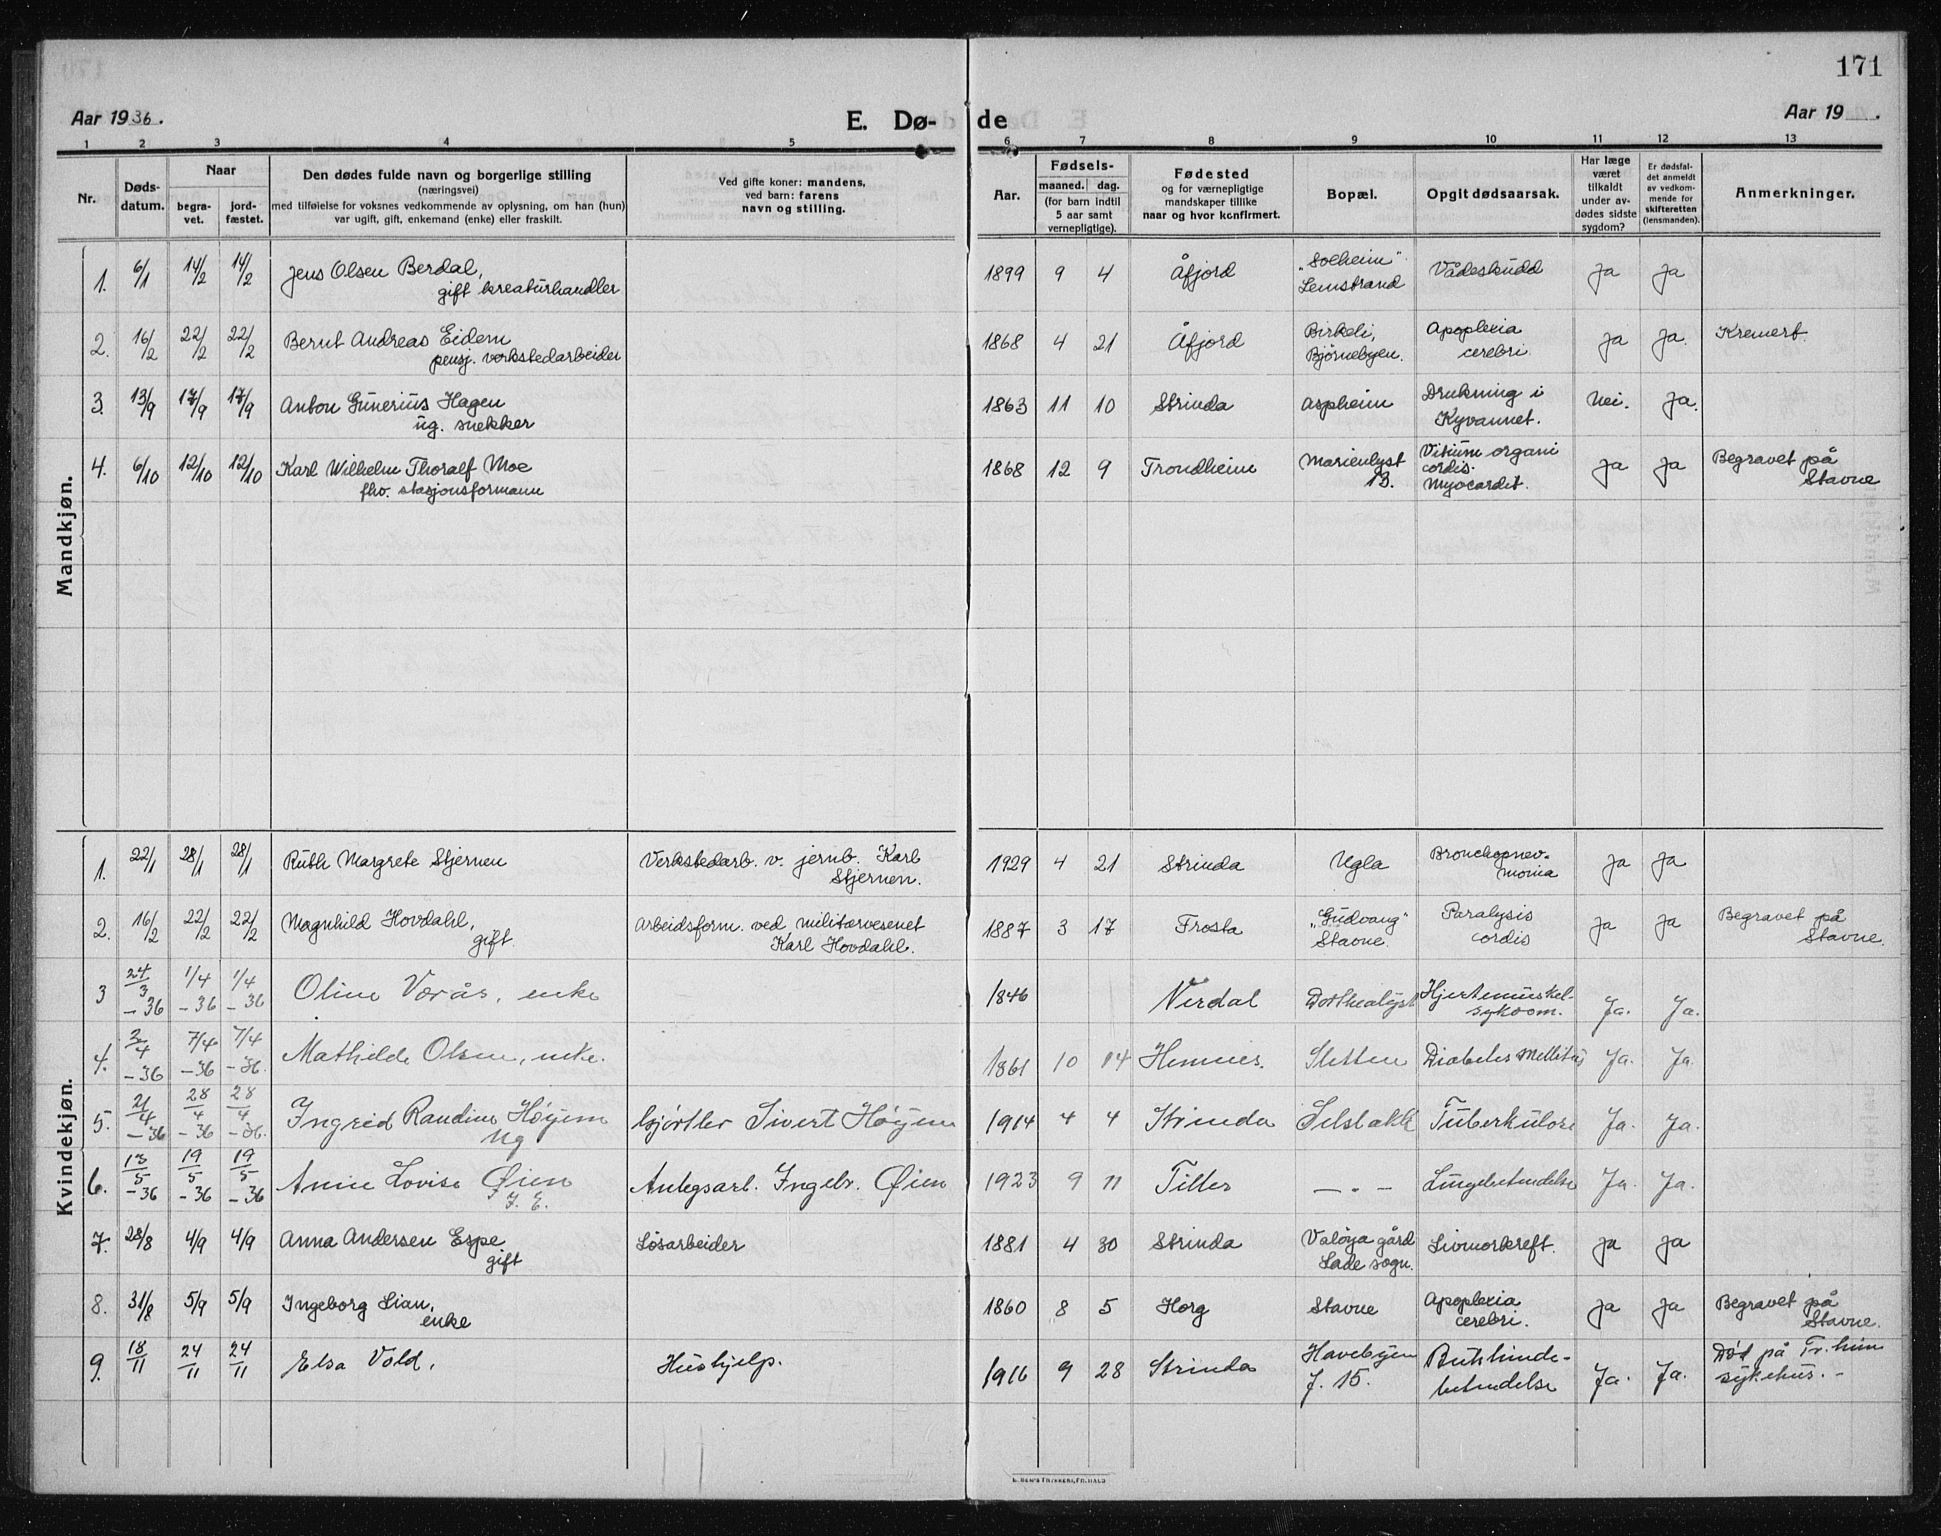 171
Aar 1936.
E. Dø-
de
Aar 19 .
1 2 3 4 5 6 7 8 9 10 11 12 13
Nr.
Døds-
datum.
Naar
begra-
vet.
jord-
fæstet.
Den dødes fulde navn og borgerlige stilling
(næringsvei)
med tilføielse for voksnes vedkommende av oplysning, om han (hun)
var ugift, gift, enkemand (enke) eller fraskilt.
Ved gifte koner: mandens,
ved barn: farens
navn og stilling.
Aar.
Fødsels-
maaned. dag.
(for barn indtil
5 aar samt
vernepligtige).
Fødested
og for værnepligtige
mandskaper tillike
naar og hvor konfirmert.
Bopæl.
Opgit dødsaarsak.
Har læge
været
tilkaldt
under av-
dødes sidste
sygdom?
Er dødsfal-
det anmeldt
av vedkom-
mende for
skifteretten
(lensmanden).
Anmerkninger.
Mandkjøn.
1. 6/1 14/2 14/2 Jens Olsen Berdal, 1899 9 4 Åfjord "Solheim" Vådeskudd Ja Ja
gift kreaturhandler Leinstrand
2. 16/2 22/2 22/2 Bernt Andreas Eidem 1868 4 21 Åfjord Birkeli, Apoplexia Ja Ja. Kremert.
pensj. verkstedarbeider Bjørnebyen. cerebri
3. 13/9 17/9 17/9 Anton Gunerius Hagen 1863 11 10 Strinda Aspheim Drukning i Nei. Ja.
ug. snekker Kyvannet.
4. 6/10 12/10 12/10 Karl Wilhelm Thoralf Moe 1868 12 9 Trondheim Marienlyst Vitium organi Ja Ja Begravet på
fhv. stasjonsformann B. cordis. Stavne
Myocardit.
Kvindekjøn.
1. 22/1 28/1 28/1 Ruth Margrete Stjernen Verkstedarb. v. jernb. Karl 1929 4 21 Strinda Ugla Bronchopnev- Ja Ja
Stjernen. monia
2. 16/2 22/2 22/2 Magnhild Hovdahl, Arbeidsform. ved militærvesenet 1887 3 17 Frosta "Gudvang" Paralysis Ja Ja Begravet på
gift. Karl Hovdahl. Stavne. cordis Stavne.
3 24/3 -36 1/4 -36 1/4 -36 Oline Værås, enke 1846 Verdal Dorthealyst Hjertemuskel- Ja. Ja.
sykdom.
4. 3/4 -36 7/4 -36 7/4 -36. Mathilde Olsen, enke. 1861 10 14 Hemnes. Sletten Diabetes Mellitus Ja. Ja.
5. 21/4 -36 28/4 -36 28/4 -36. Ingrid Randine Høyem Gjørtler Sivert Høyem 1914 4 4 Strinda Selsbakk Tuberkulose Ja. Ja.
Ug
6. 13/5 -36 19/5 -36 19/5 -36 Anne Lovise Øien Anlegsarb. Ingebr. Øien 1923 9 11 Tiller — „ — Lungebetendelse Ja. Ja.
7. 28/8 4/9 4/9 Anna Andersen Espe Løsarbeider 1881 4 30 Strinda Valøya gård Livmorkreft. Ja Ja
gift Lade sogn.
8. 31/8 5/9 5/9 Ingeborg Lian, 1860 8 5 Horg Stavne Apoplexia Ja Ja Begravet på
enke cerebri. Stavne.
9. 18/11 24/11 24/11 Elsa Vold, Hushjelp. 1916 9 28 Strinda Havebyen Bukhinde- Ja. Ja. Død på Tr.heim
J. 15. betendelse sykehus. -